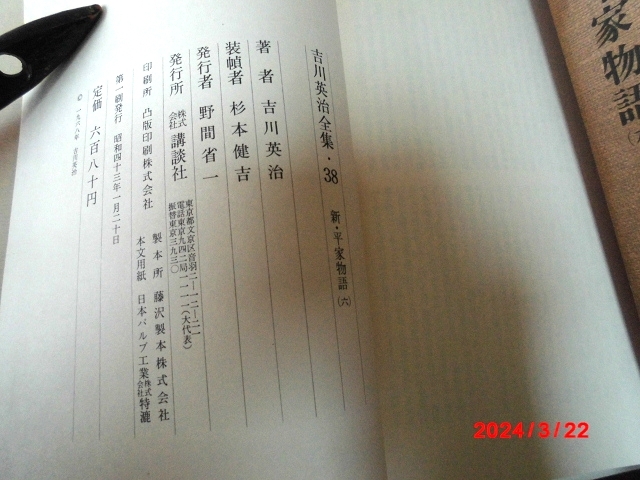 吉川英治全集・38 新・平家物語(六)
著者 吉川英治
装幀者 杉本健吉
発行者 野間省一
発行所 株式会社 講談社
東京都文京区音羽二—一二—二一
電話東京九四二局一一一一(大代表)
振替東京三九三〇
印刷所 凸版印刷株式会社
製本所 藤沢製本株式会社
本文用紙 日本パルプ工業株式会社特漉
第一刷発行 昭和四十三年一月二十日
定価 六百八十円
© 一九六八年 吉川英治
家物語
2024/3/22